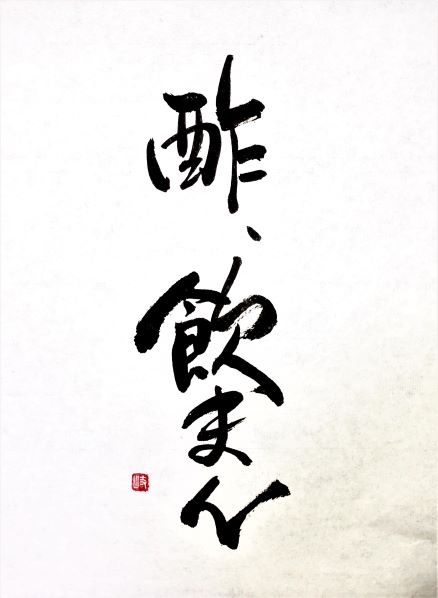 酢、飲まん